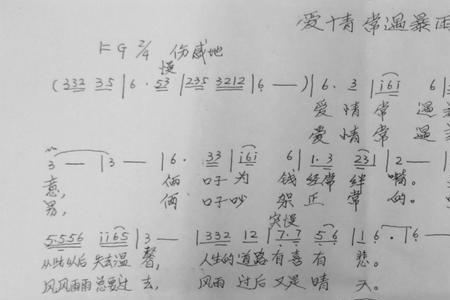 爱情常遇暴雨
1=G 2/4 伤感地
慢
(332 35 | 6· 53 | 235 3212 | 6 — ) | 6· 3 | i6i 6 |
爱情常遇
爱情常遇
3 — | 3 — | 6· 33 | i6i 6 | 1·3 23 | 2 — |
意, 俩口子为钱经常绊嘴。
易, 俩口子吵架正常的。
突慢
5556 ii65 | 3 — | 332 12 | 7·7 56 | 16· | 6 —
从此以后失去温馨, 人生的道路有喜有悲。
风风雨雨总要过去, 风雨过后又是晴天。